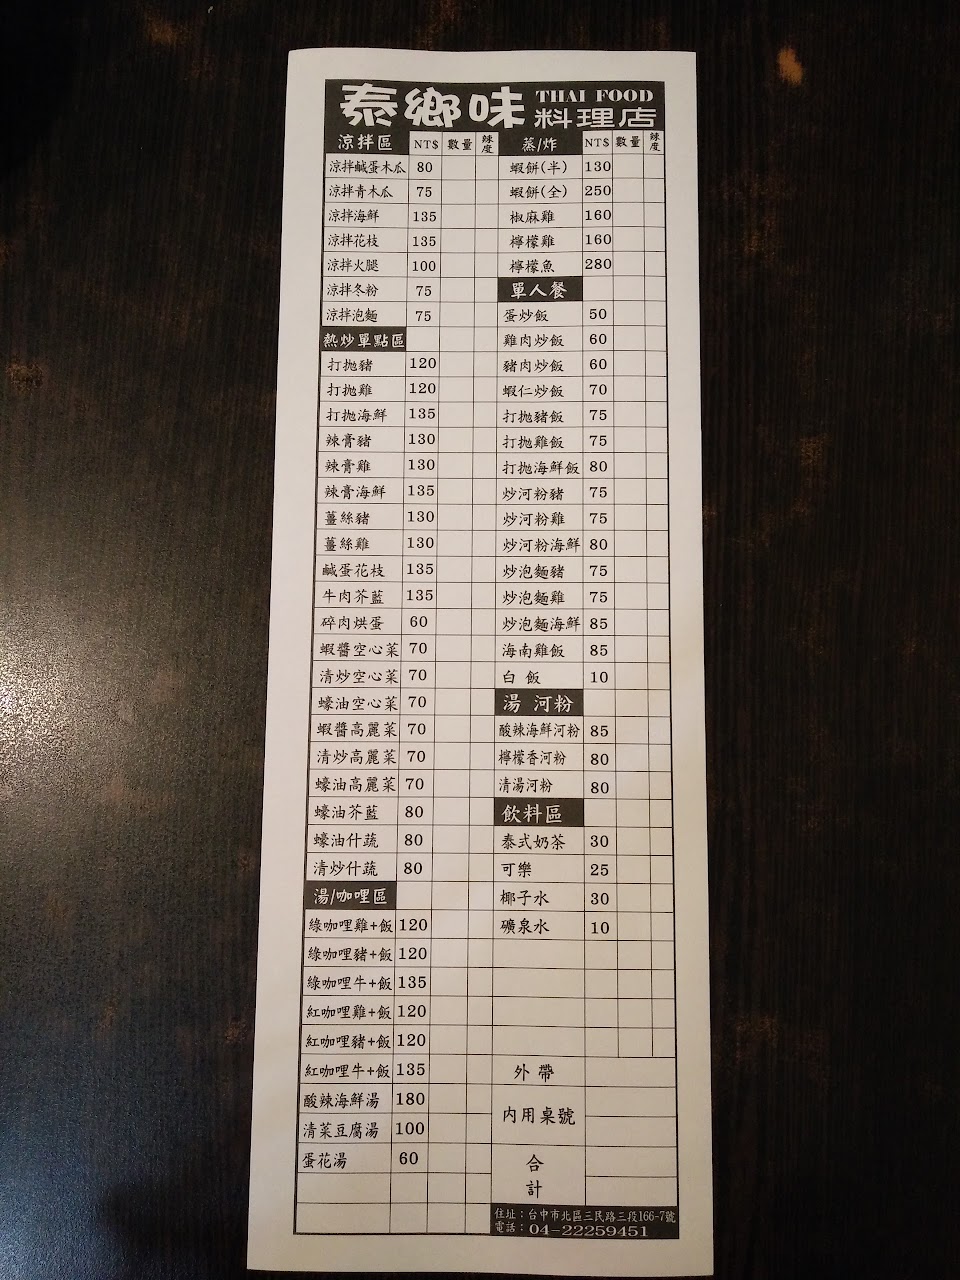 泰鄉味 THAI FOOD 料理店
涼拌區 NT$ 數量 辣度
涼拌鹹蛋木瓜 80
涼拌青木瓜 75
涼拌海鮮 135
涼拌花枝 135
涼拌火腿 100
涼拌冬粉 75
涼拌泡麵 75
熱炒單點區
打拋豬 120
打拋雞 120
打拋海鮮 135
辣膏豬 130
辣膏雞 130
辣膏海鮮 135
薑絲豬 130
薑絲雞 130
鹹蛋花枝 135
牛肉芥藍 135
碎肉烘蛋 60
蝦醬空心菜 70
清炒空心菜 70
蠔油空心菜 70
蝦醬高麗菜 70
清炒高麗菜 70
蠔油高麗菜 70
蠔油芥藍 80
蠔油什蔬 80
清炒什蔬 80
湯/咖哩區
綠咖哩雞+飯 120
綠咖哩豬+飯 120
綠咖哩牛+飯 135
紅咖哩雞+飯 120
紅咖哩豬+飯 120
紅咖哩牛+飯 135
酸辣海鮮湯 180
清菜豆腐湯 100
蛋花湯 60
蒸/炸 NT$ 數量 辣度
蝦餅(半) 130
蝦餅(全) 250
椒麻雞 160
檸檬雞 160
檸檬魚 280
單人餐
蛋炒飯 50
雞肉炒飯 60
豬肉炒飯 60
蝦仁炒飯 70
打拋豬飯 75
打拋雞飯 75
打拋海鮮飯 80
炒河粉豬 75
炒河粉雞 75
炒河粉海鮮 80
炒泡麵豬 75
炒泡麵雞 75
炒泡麵海鮮 85
海南雞飯 85
白 飯 10
湯 河粉
酸辣海鮮河粉 85
檸檬香河粉 80
清湯河粉 80
飲料區
泰式奶茶 30
可樂 25
椰子水 30
礦泉水 10
外 帶
內用桌號
合
計
住址：台中市北區三民路三段166-7號
電話：04-22259451